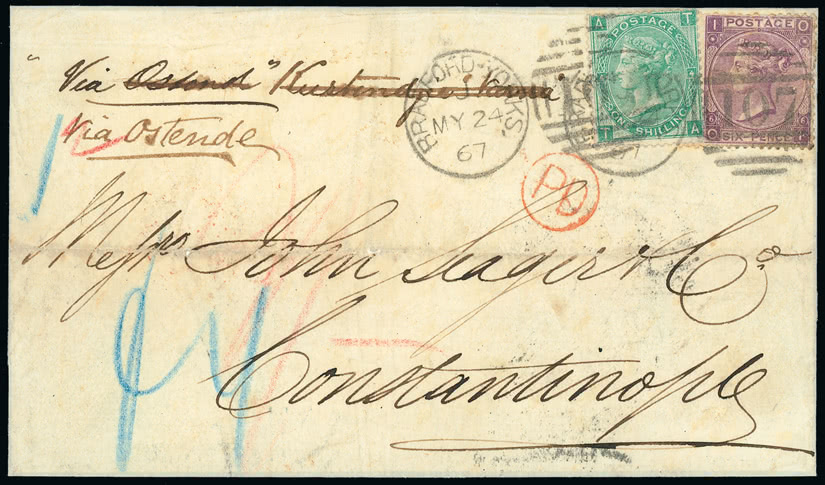 "Via Ostende" Kustendje Varna"
Via Ostende
BRADFORD-YORKS.
MY 24
67
A T
POSTAGE
ONE SHILLING
T A
I O
POSTAGE
6
6
SIX-PENCE
O
107
PD
Messrs John Seager & Co.
Constantinople